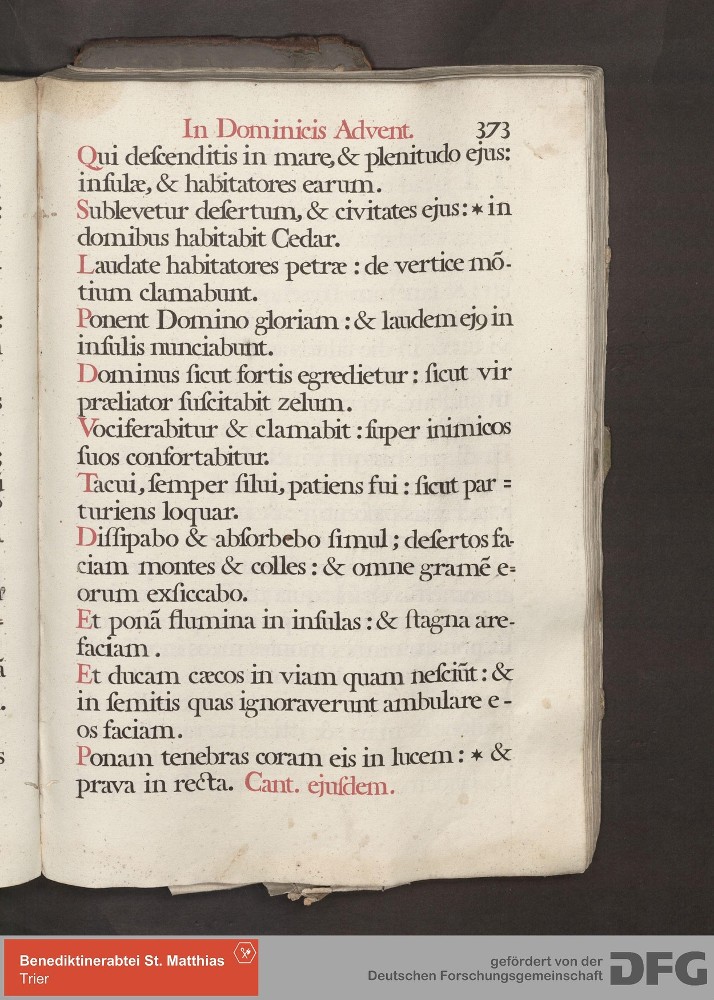 In Dominicis Advent. 373
Qui deſcenditis in mare, & plenitudo ejus:
inſulæ, & habitatores earum.
Sublevetur deſertum, & civitates ejus: * in
domibus habitabit Cedar.
Laudate habitatores petræ : de vertice mõ-
tium clamabunt.
Ponent Domino gloriam : & laudem ej9 in
inſulis nunciabunt.
Dominus ſicut fortis egredietur : ſicut vir
præliator ſuſcitabit zelum.
Vociferabitur & clamabit : ſuper inimicos
ſuos confortabitur.
Tacui, ſemper ſilui, patiens fui : ſicut par =
turiens loquar.
Diſſipabo & abſorbebo ſimul ; deſertos fa-
ciam montes & colles : & omne gramẽ e=
orum exſiccabo.
Et ponã flumina in inſulas : & ſtagna are-
faciam.
Et ducam cæcos in viam quam neſciũt : &
in ſemitis quas ignoraverunt ambulare e-
os faciam.
Ponam tenebras coram eis in lucem : * &
prava in recta. Cant. ejuſdem.
Benediktinerabtei St. Matthias
Trier
gefördert von der
Deutschen Forschungsgemeinschaft
DFG